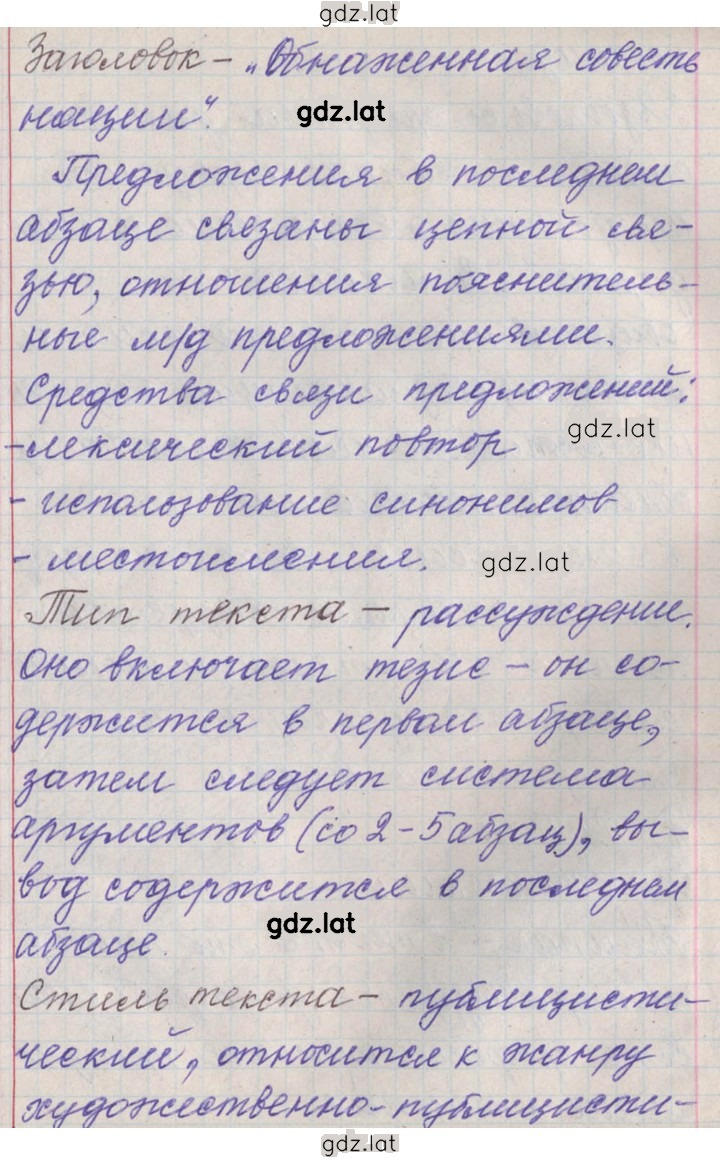 gdz.lat
Заголовок – „Обнаженная совесть
нации".
gdz.lat
Предложения в последнем
абзаце связаны цепной свя-
зью, отношения пояснитель-
ные м/д предложениями.
Средства связи предложений:
gdz.lat
-лексический повтор
- использование синонимов
- местоимения.
gdz.lat
Тип текста – рассуждение.
Оно включает тезис – он со-
держится в первом абзаце,
затем следует система
аргументов (со 2 – 5 абзац), вы-
вод содержится в последнем
gdz.lat
абзаце.
Стиль текста – публицисти-
ческий, относится к жанру
художественно-публицисти-
gdz.lat